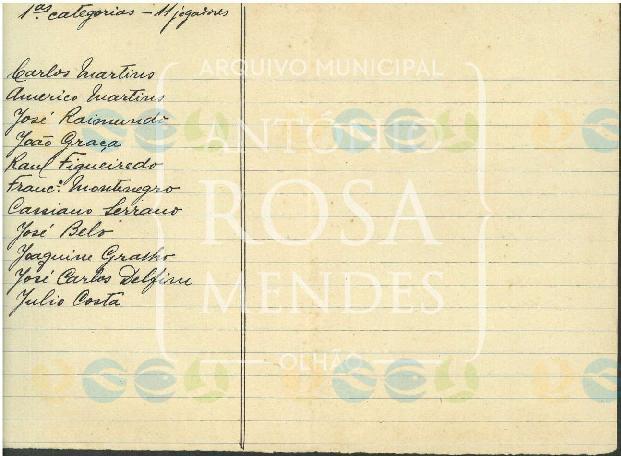 1.as categorias – 11 jogadores
Carlos Martins
Americo Martins
José Raimundo
João Graça
Raul Figueiredo
Franc.º Montenegro
Cassiano Serrano
José Belo
Joaquim Gralho
José Carlos Delfim
Julio Costa
ARQUIVO MUNICIPAL
ANTÓNIO
ROSA
MENDES
OLHÃO